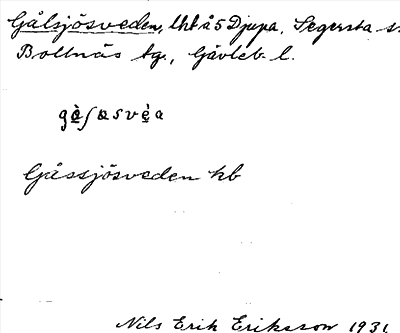 Gålsjösveden, lht å 5 Djupa, Segersta s.
Bollnäs tg., Gävleb. l.
Gåssjösveden hb
Nils Erik Eriksson 1931